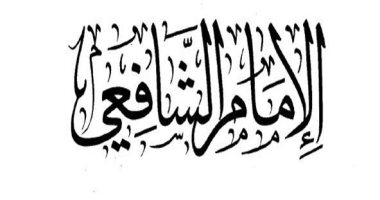 الإِمَامِ الشَّافِعِي